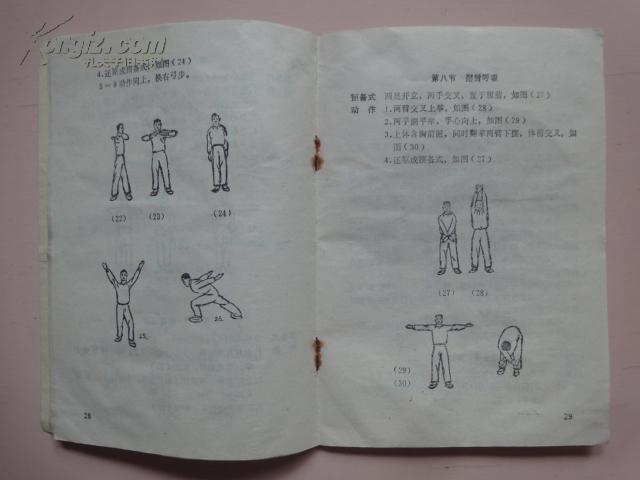 kongfz.com
孔夫子旧书网
4.还原成预备式,如图(24)
5-8动作同上,换右弓步。
(22) (23) (24)
25.
26.
28
第八节 摆臂呼吸
预备式 两足开立,两手交叉,置于腹前,如图(27)
动作 1.两臂交叉上举,如图(28)
2.两手侧平举,手心向上,如图(29)
3.上体含胸前屈,同时两臂下摆,体前交叉,如
图(30)
4.还原成预备式,如图(27)
(27) (28)
(29)
(30)
29